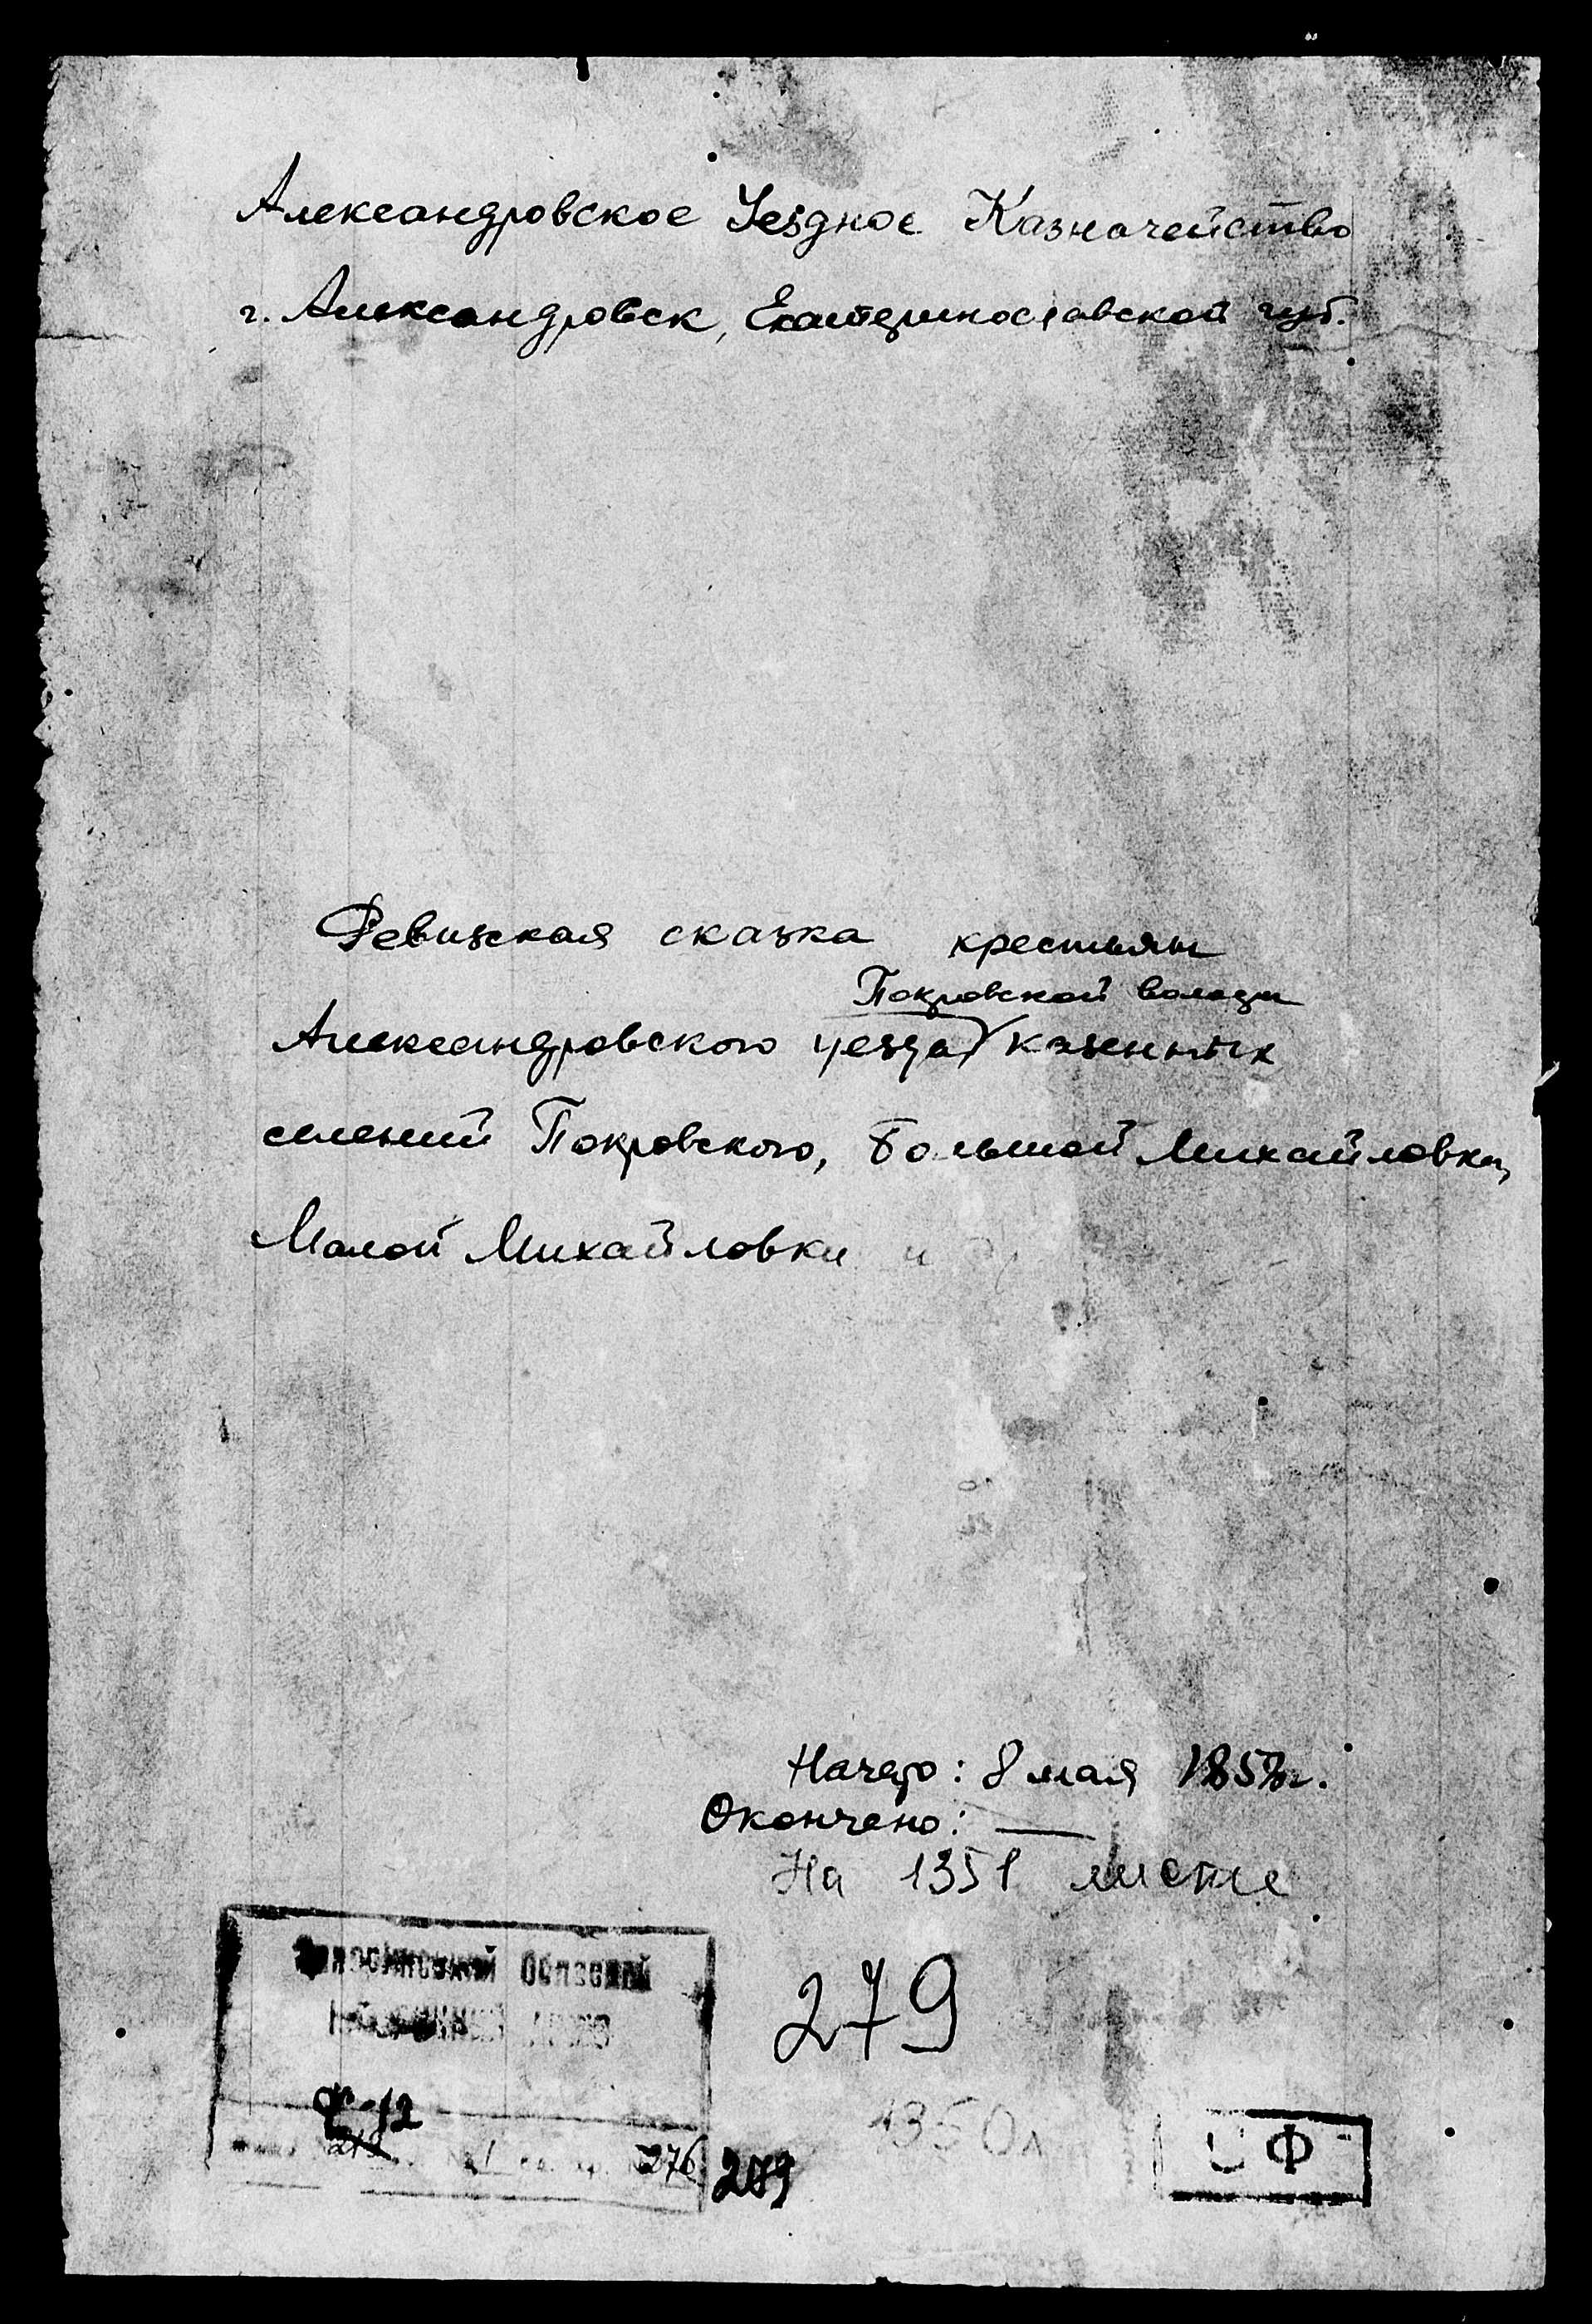 Александровское Уездное Казначейство
г. Александровск, Екатеринославской губ.
Ревизская сказка крестьян
Покровской волости
Александровского уезда казенных
селений Покровского, Большой Михайловки,
Малой Михайловки и др
Начато: 8 мая 1858г.
Окончено: —
На 1351 листе
279
Областной
Ф-12
1350л
276 279
Ф